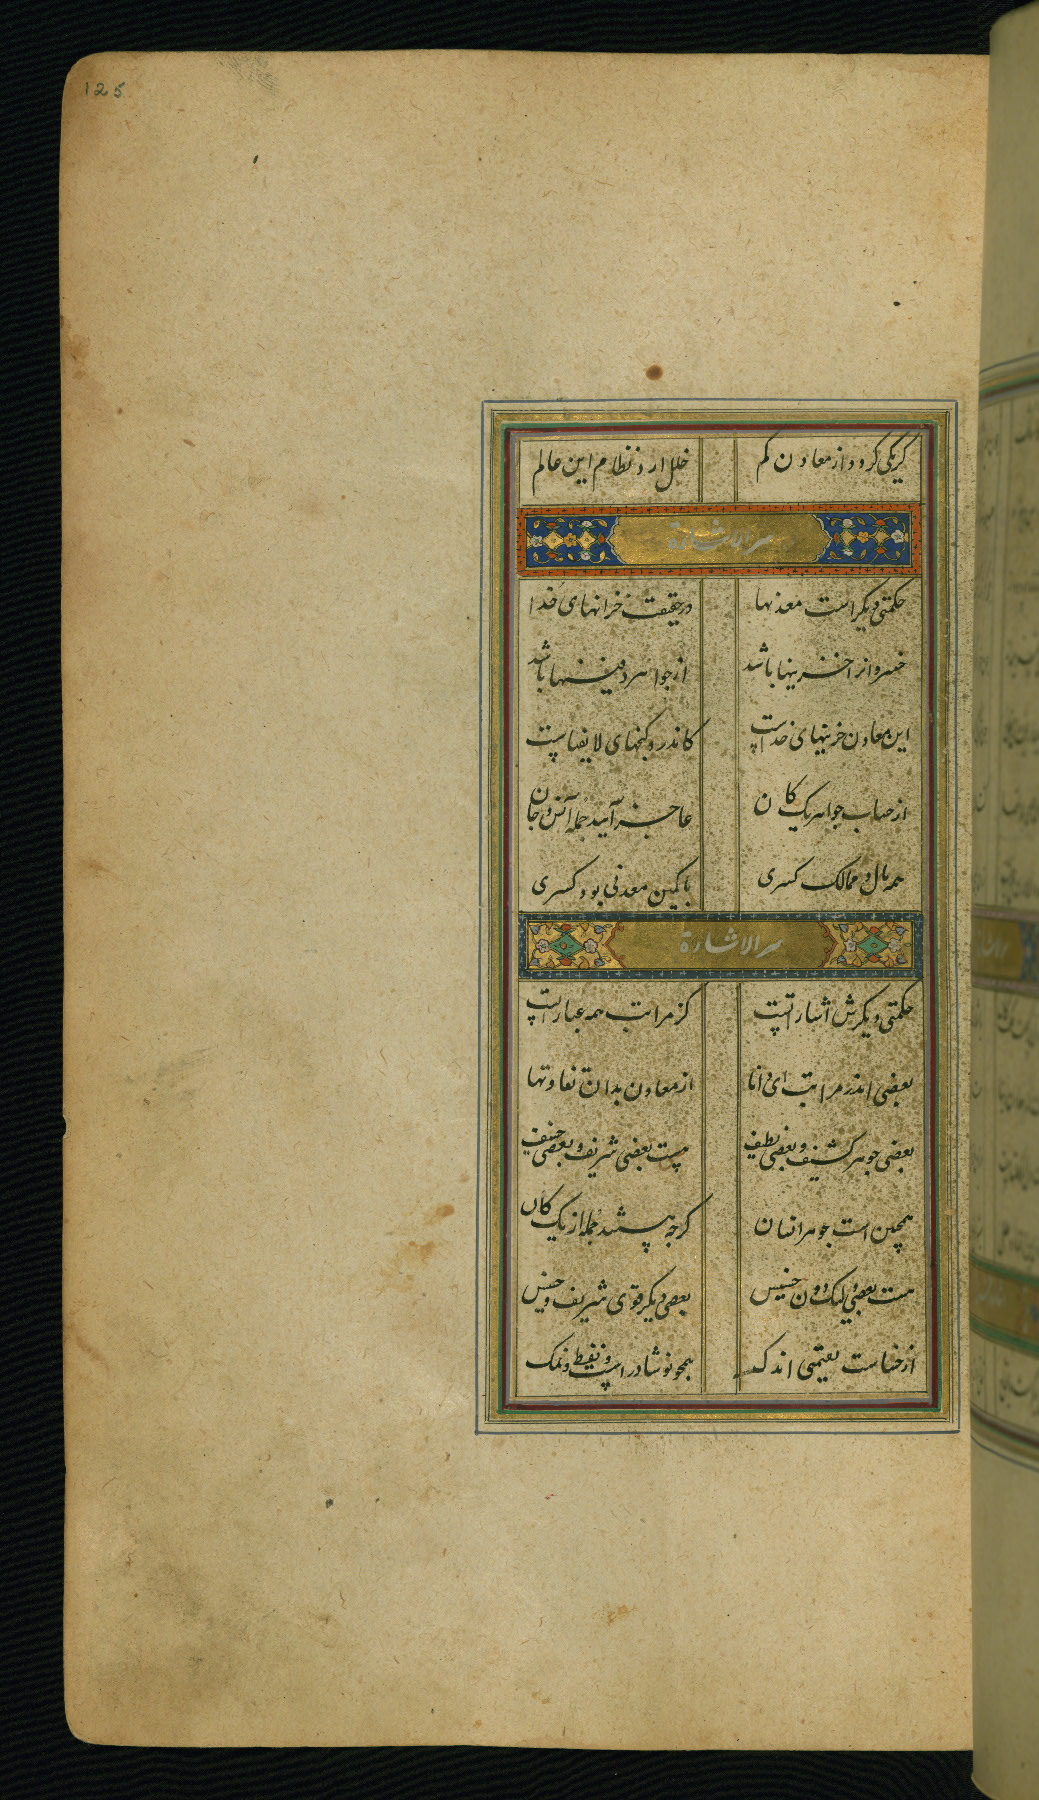 125
کر یکی کردد از معادن کم خلل ارد نظام این عالم
سر الاشارة
حکمتی دیکر است معدنها در حقیقت خزانهای خدا
خسروانرا خزینها باشد از جواهر دفینها باشد
این معادن خزینهای خداست کاندرو کنجهای لایفناست
از حساب جواهر یک کان عاجز آیند جمله انس و جان
همه مال و ممالک کسری با کمین معدنی بود کسری
سر الاشارة
حکمتی دیکرش اشاراتست کز مراتب همه عباراتست
بعضی اندر مراتب ای دانا از معادن بدان تفاوتها
بعضی جوهر کثیف و بعضی لطیف هست بعضی شریف و بعضی
همچنین است جوهر انسان کرچه هستند جمله از یک کان
هست بعضی ولیک دون خسیس بعضی دیکر قوی شریف و
از خساست بقیمتی اندک همچو نوشادر است و نفط و نمک